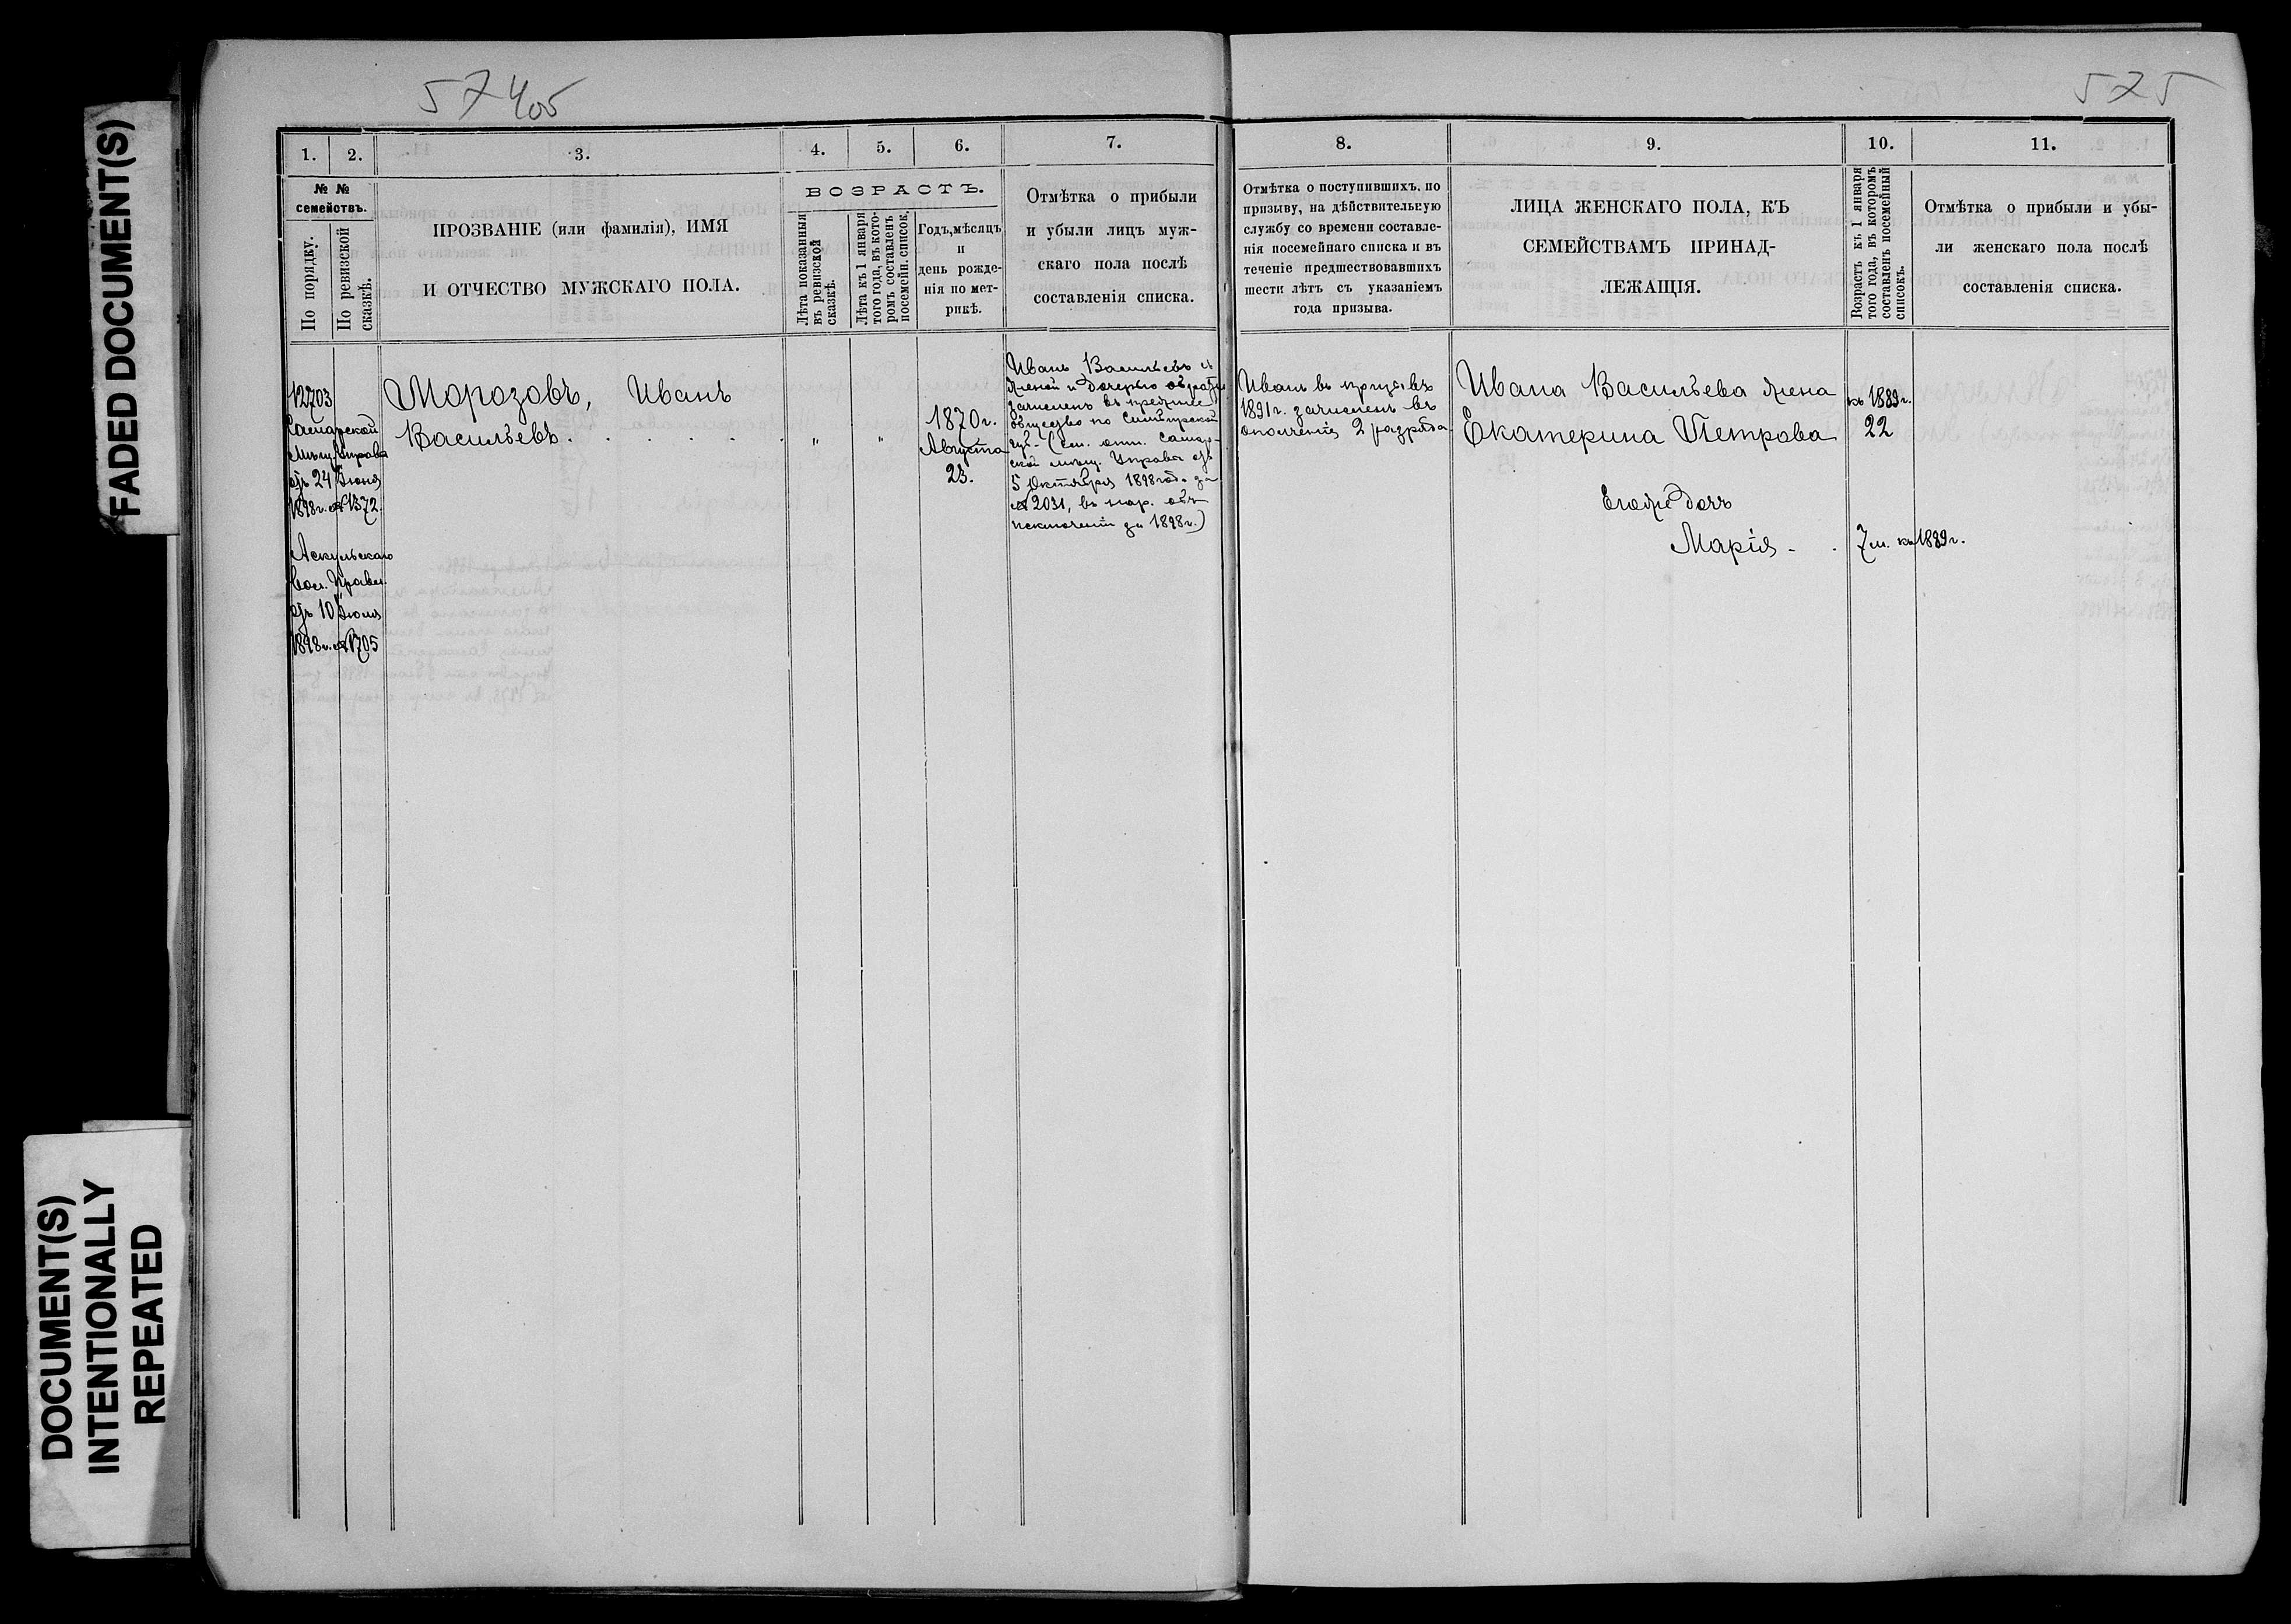 FADED DOCUMENT(S)
DOCUMENT(S)
INTENTIONALLY
REPEATED
575
1.
2.
3.
4.
5.
6.
7.
№ №
семействъ.
По порядку.
По ревизской
сказкѣ.
ПРОЗВАНІЕ (или фамилія), ИМЯ
И ОТЧЕСТВО МУЖСКАГО ПОЛА.
ВОЗРАСТЪ.
Лѣта показанныя
въ ревизской
сказкѣ.
Лѣта къ 1 января
того года, въ кото-
ромъ составленъ
посемейн. списокъ.
Годъ, мѣсяцъ
и
день рожде-
нія по мет-
рикѣ.
Отмѣтка о прибыли
и убыли лицъ муж-
скаго пола послѣ
составленія списка.
12703
Самарской
Мѣщ. Управы
отъ 24 Іюня
1898 г. № 1372.
Аскульскаго
Вол. Правл.
отъ 10 Іюля
1898 г. № 1705
Морозовъ, Иванъ
Васильевъ . . . . . .
"
"
1870 г.
Августа
23.
Иванъ Васильевъ съ
женой и дочерью обратно
зачисленъ въ прежнее
общество по Симбирской
губ. (см. отн. Самар-
ской мѣщ. Управы отъ
5 Октября 1898 год. за
№ 2031, въ нар. объ
исключеніи за 1898 г.)
8.
9.
10.
11.
Отмѣтка о поступившихъ, по
призыву, на дѣйствительную
службу со времени составле-
нія посемейнаго списка и въ
теченіе предшествовавшихъ
шести лѣтъ съ указаніемъ
года призыва.
ЛИЦА ЖЕНСКАГО ПОЛА, КЪ
СЕМЕЙСТВАМЪ ПРИНАД-
ЛЕЖАЩІЯ.
Возрастъ къ 1 января
того года, въ которомъ
составленъ посемейный
списокъ.
Отмѣтка о прибыли и убы-
ли женскаго пола послѣ
составленія списка.
Иванъ въ призывъ
1891 г. зачисленъ въ
ополченіе 2 разряда
Ивана Васильева жена
Екатерина Петрова
къ 1889 г.
22
Его же дочь
Марія - .
7 м. къ 1889 г.